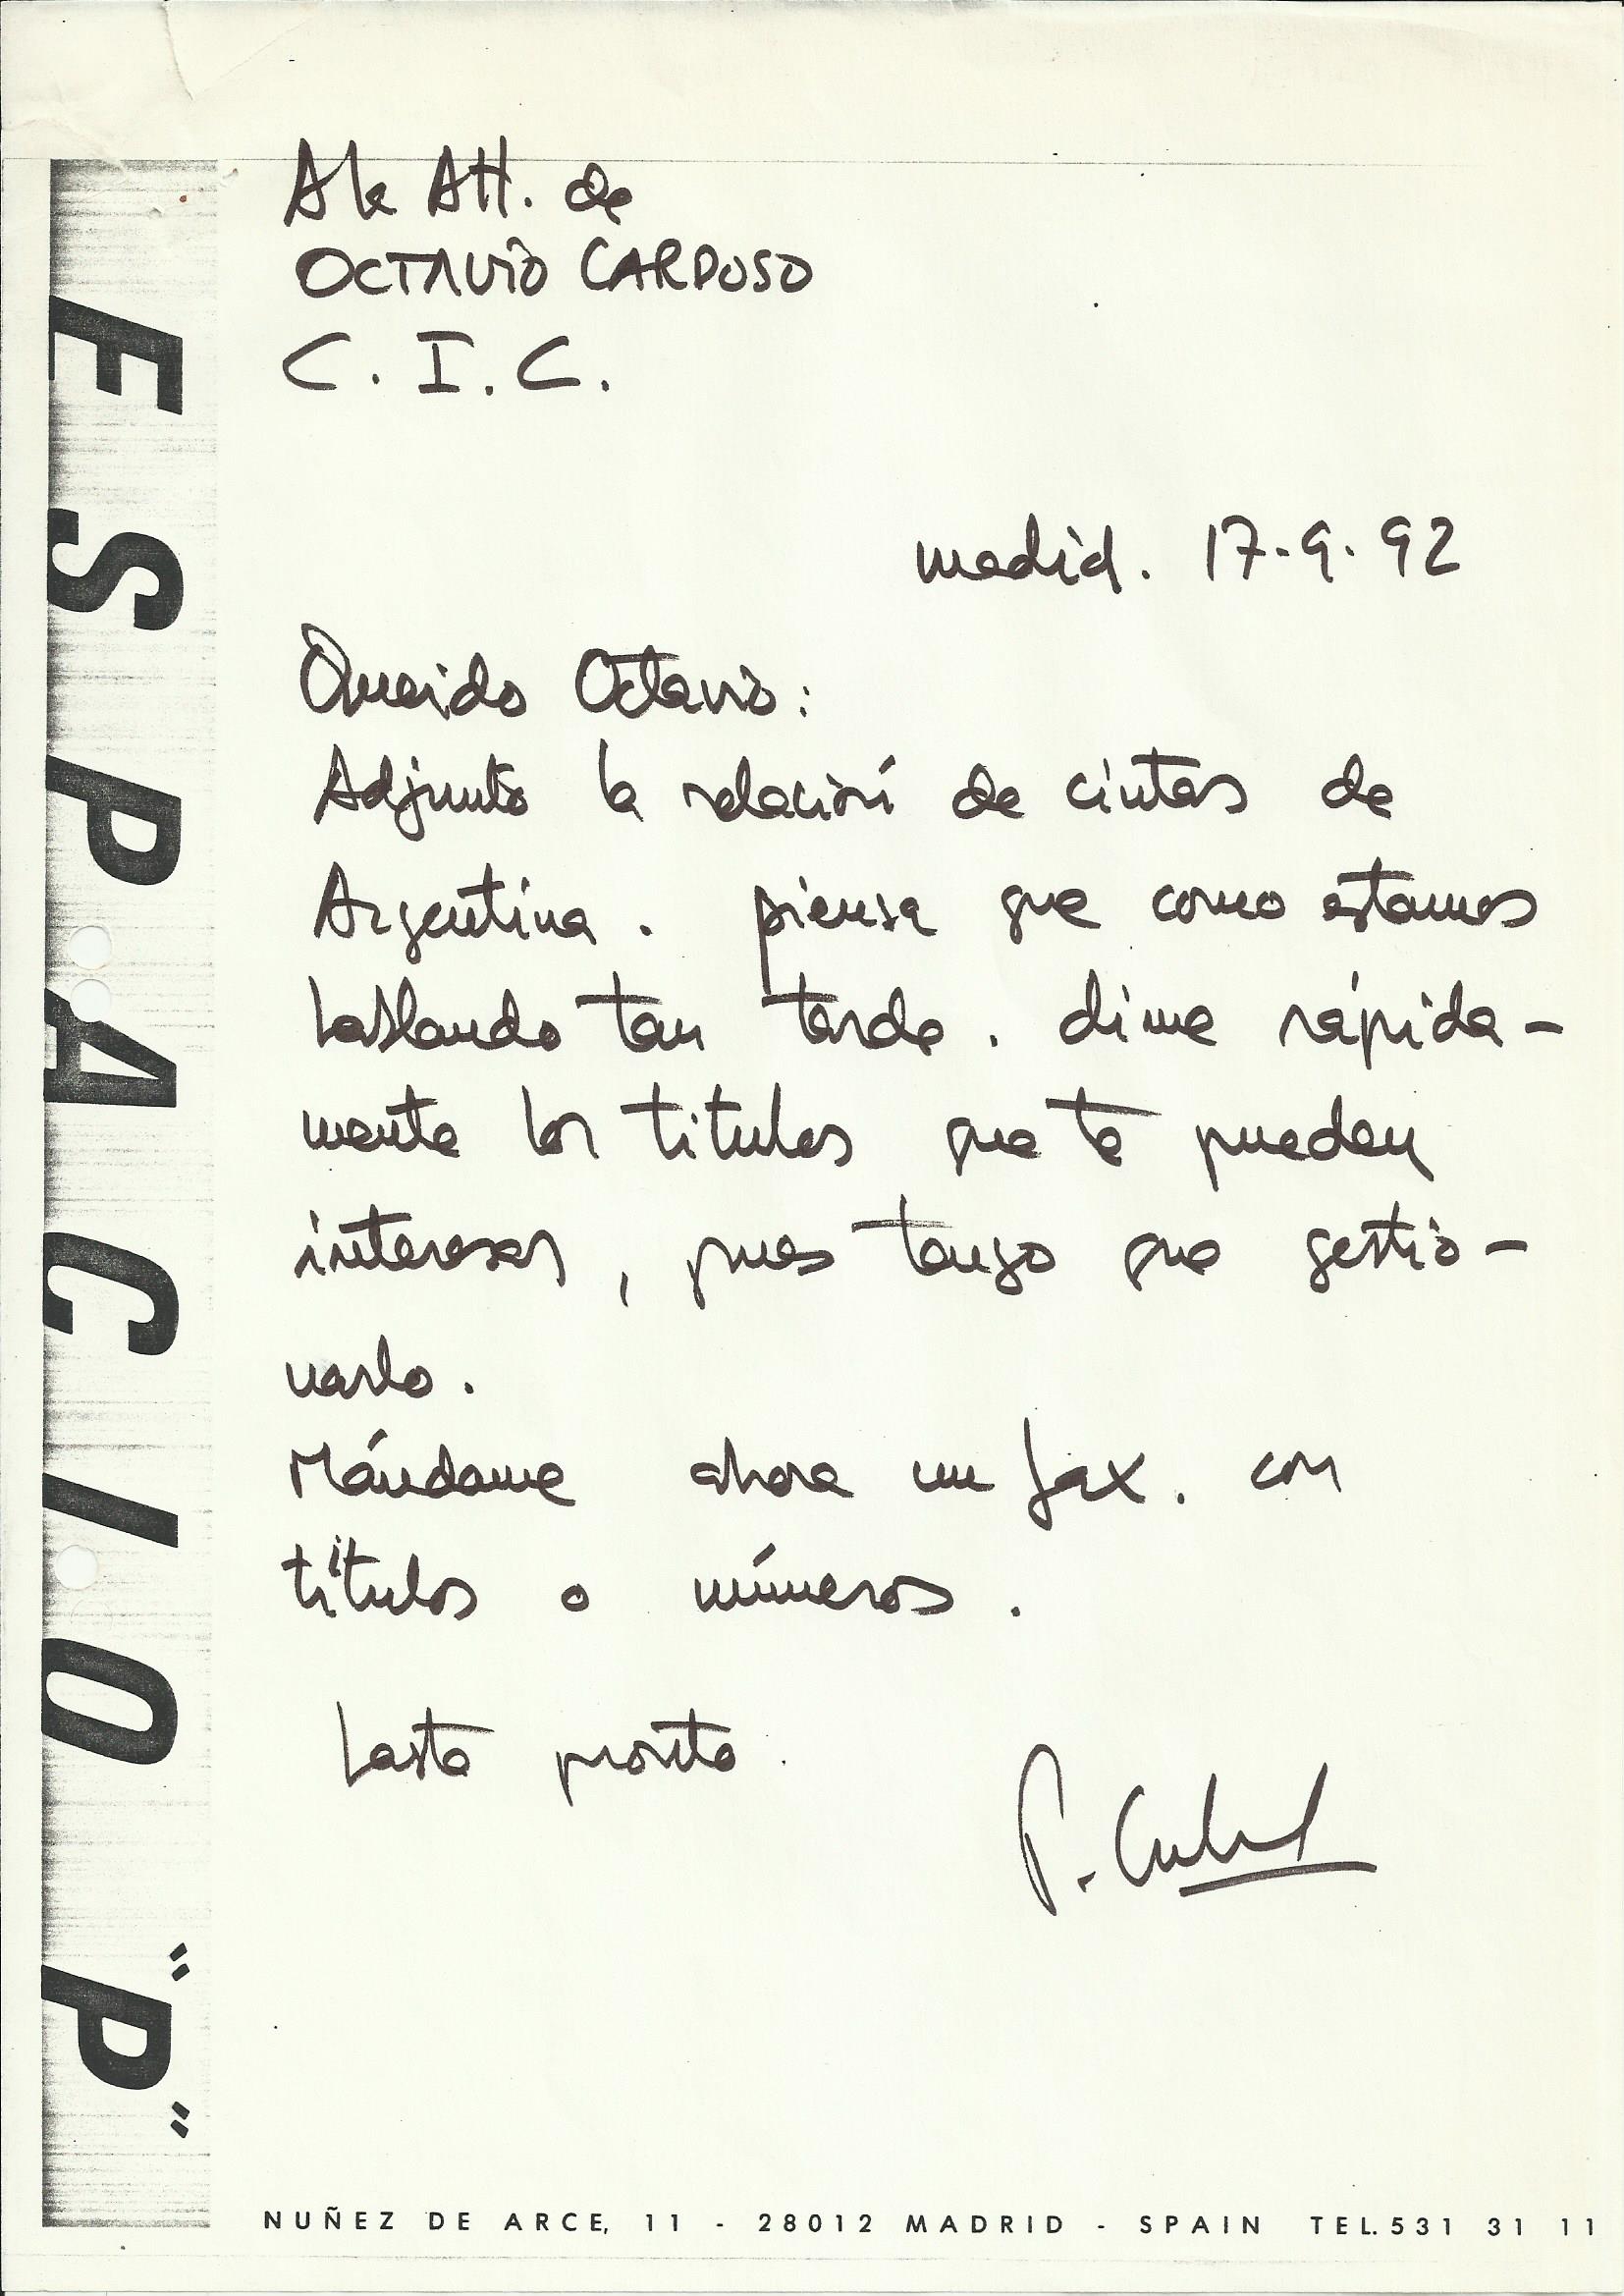 A la Att. de
OCTAVIO CARDOSO
C. I. C.
madrid. 17-9-92
Querido Octavio:
Adjunto la relación de cintas de
Argentina. piensa que como estamos
hablando tan tarde. dime rápida-
mente los titulos que te pueden
interesar, pues tengo que gestio-
narlo.
Mándame ahora un fax. con
títulos o números.
hasta pronto.
ESPACIO "P"
NUÑEZ DE ARCE, 11 - 28012 MADRID - SPAIN TEL. 531 31 11